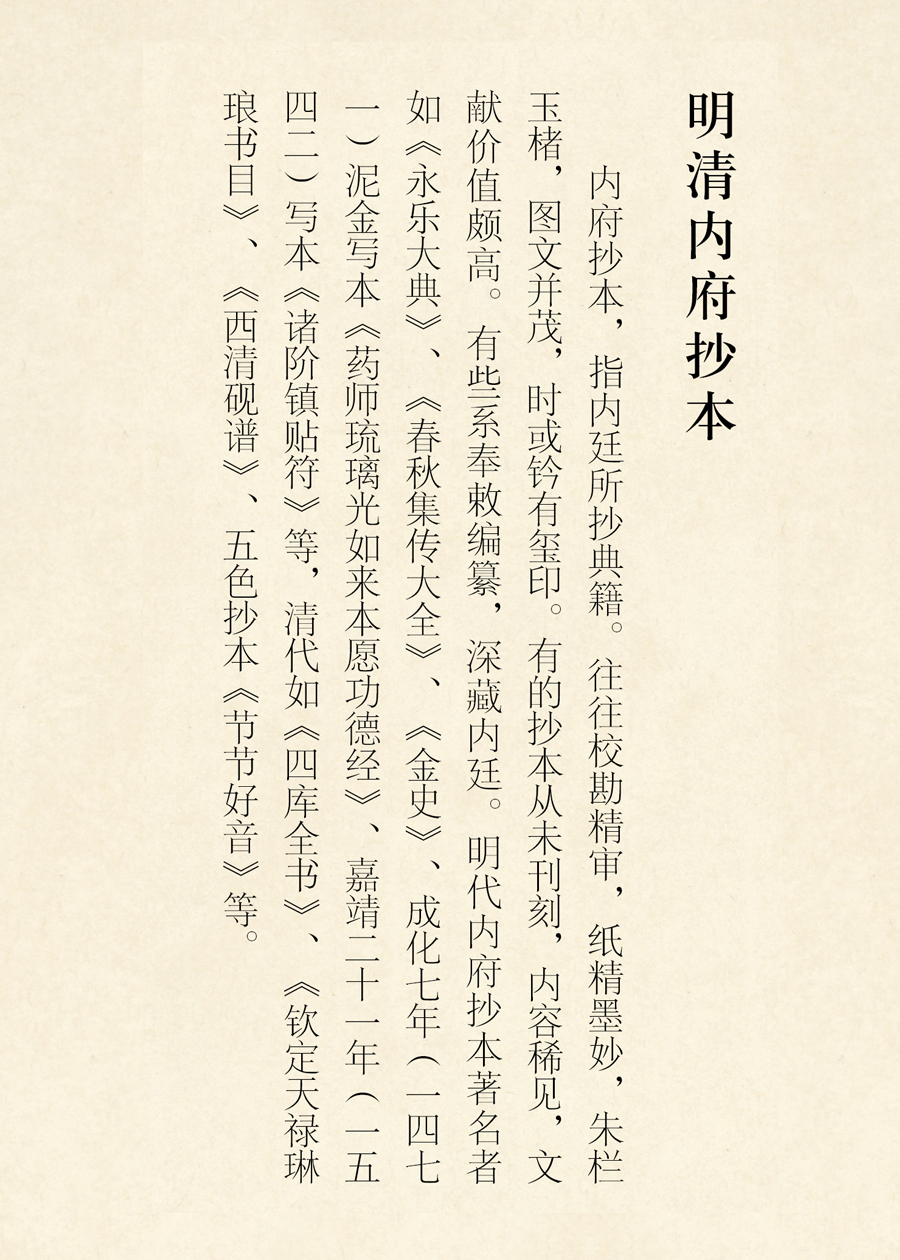 明清内府抄本
内府抄本，指内廷所抄典籍。往往校勘精审，纸精墨妙，朱栏
玉楮，图文并茂，时或钤有玺印。有的抄本从未刊刻，内容稀见，文
献价值颇高。有些系奉敕编纂，深藏内廷。明代内府抄本著名者
如《永乐大典》、《春秋集传大全》、《金史》、成化七年（一四七
一）泥金写本《药师琉璃光如来本愿功德经》、嘉靖二十一年（一五
四二）写本《诸阶镇贴符》等，清代如《四库全书》、《钦定天禄琳
琅书目》、《西清砚谱》、五色抄本《节节好音》等。